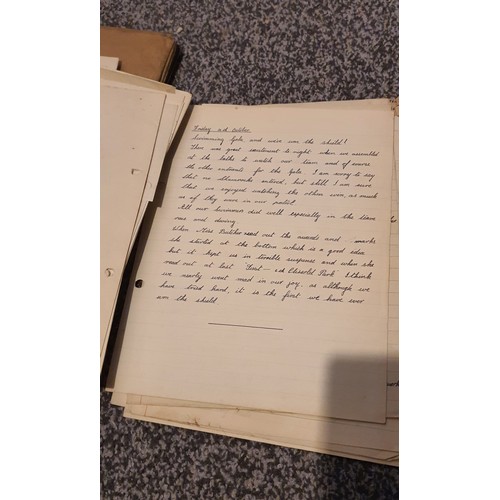 Friday 4th October
Swimming Gala and won we the shield!
There was great excitement to night when we assembled
at the baths to watch our team and of course
the other entrants for the Gala. I am sorry to say
that no entered, but still I am sure
that we enjoyed watching the others even, as much
as if they were in our patrol.
All our swimmers did well especially in the team
race and diving.
When Miss read out the awards and marks
she started at the bottom which is a good idea
but it kept us in terrible suspense and when she
read out at last "First - 4th Clissold Park" I think
we nearly went mad in our joy, as although we
have tried hard, it is the first we have ever
won the shield